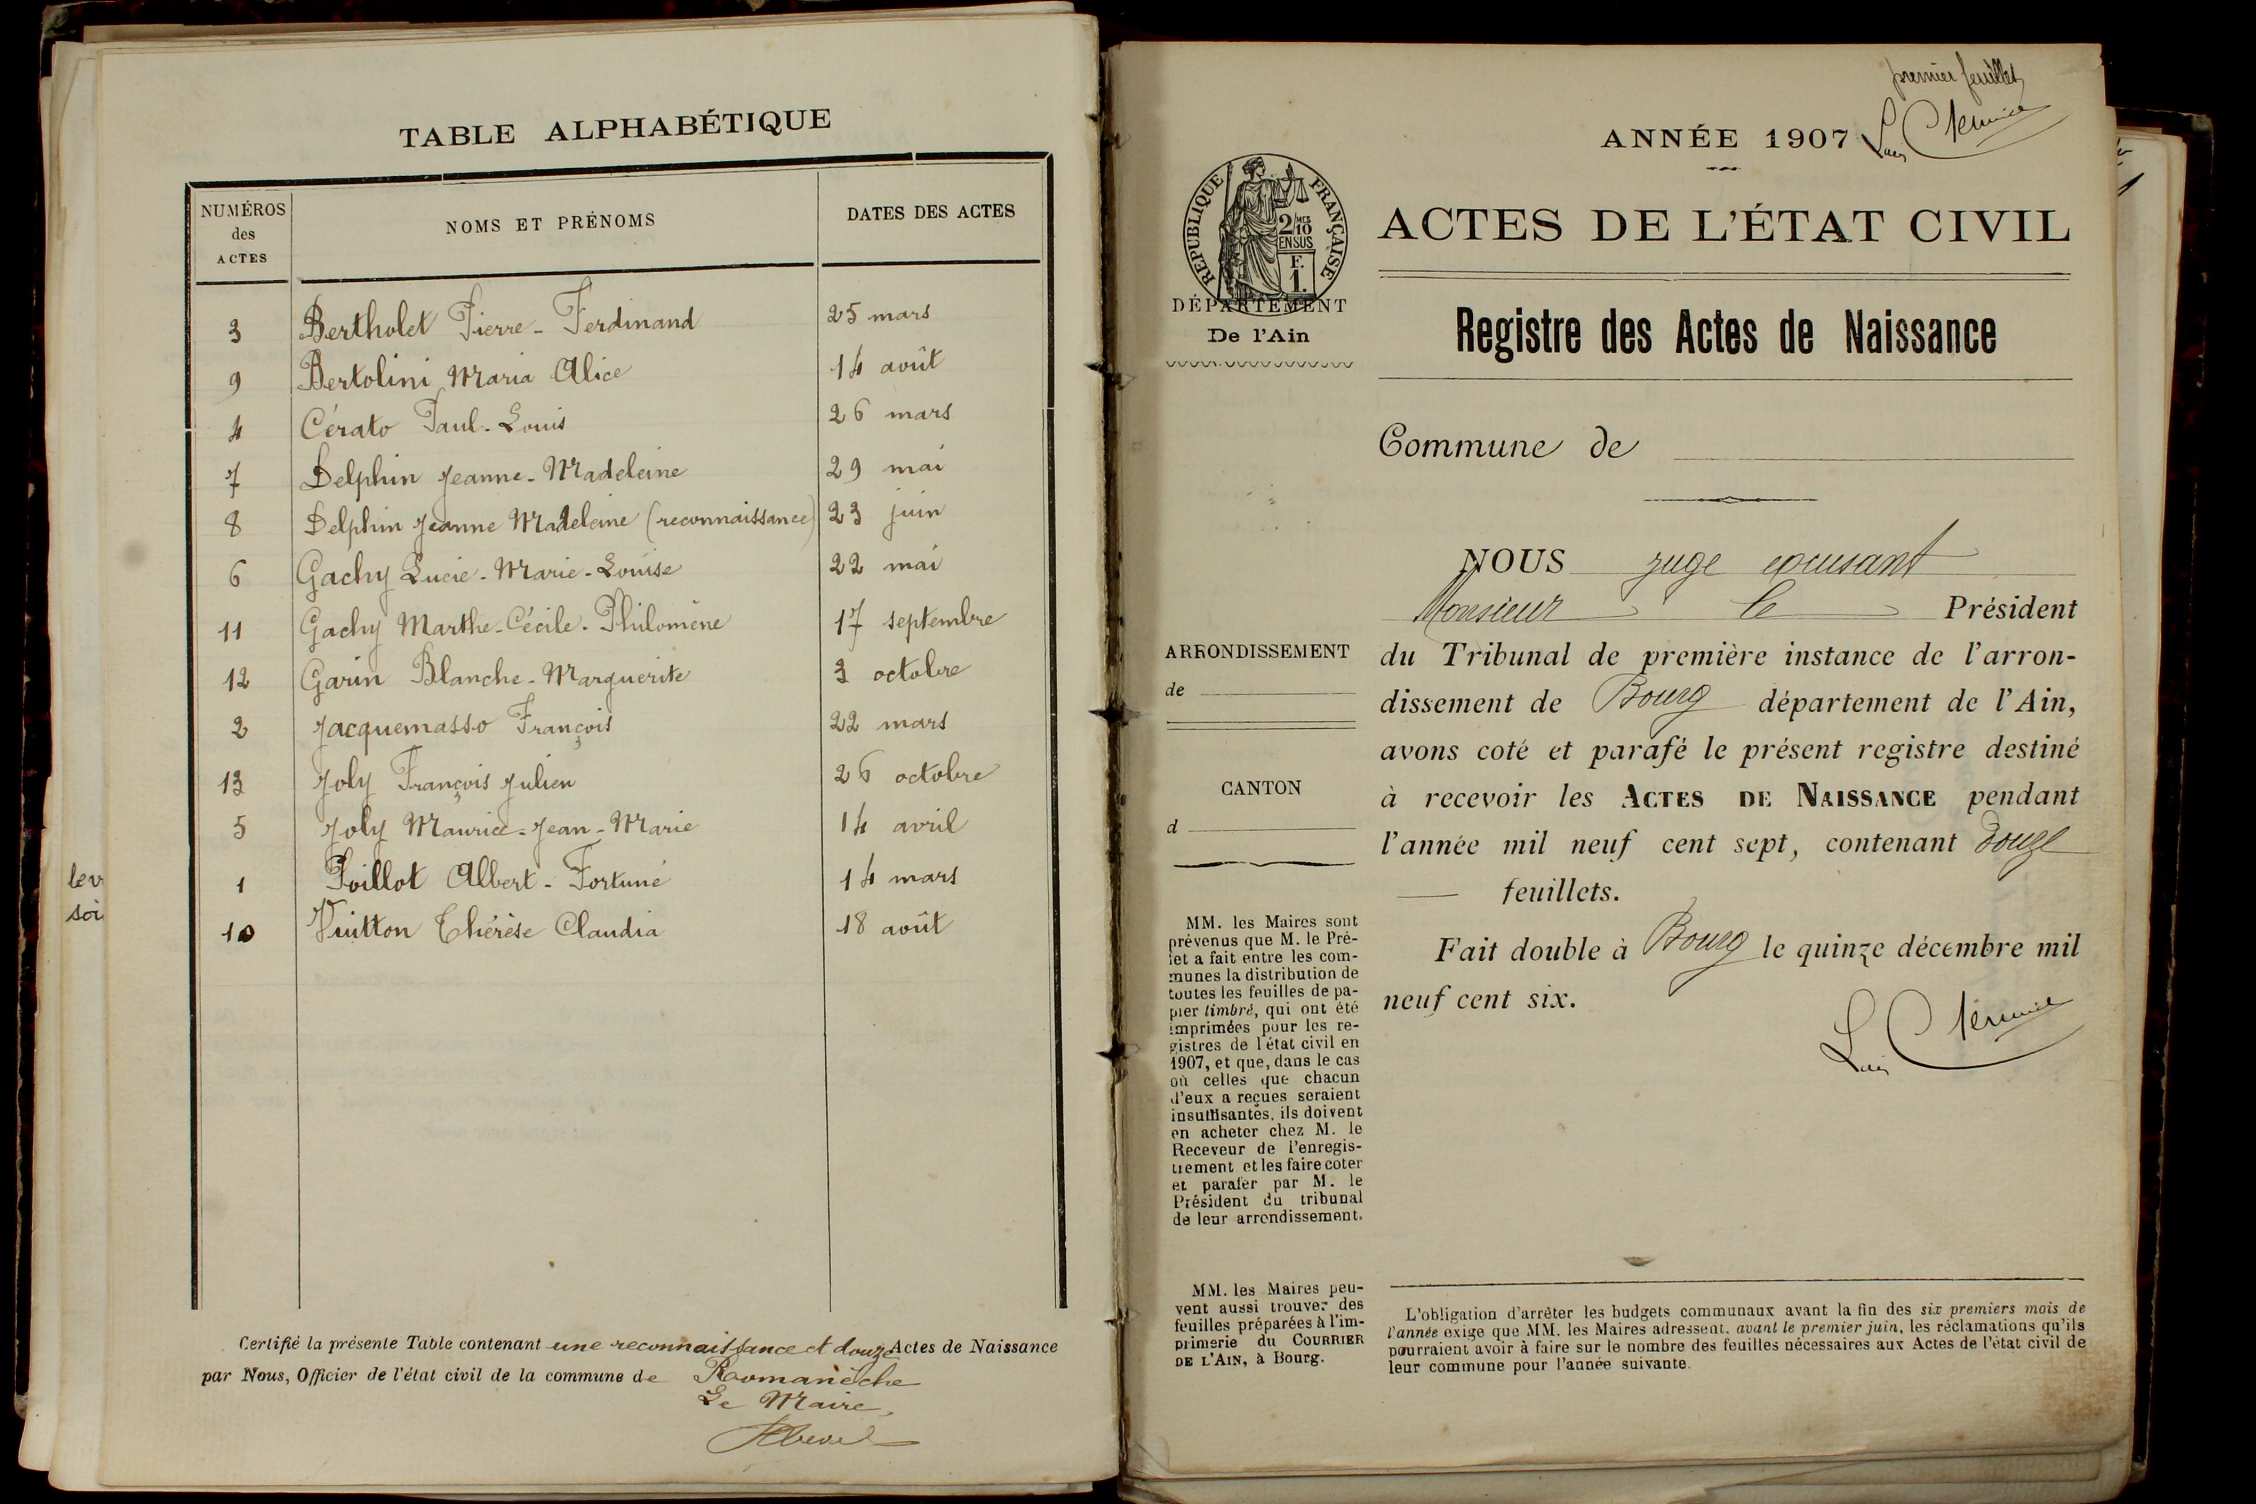 TABLE ALPHABÉTIQUE
NUMÉROS des ACTES NOMS ET PRÉNOMS DATES DES ACTES
3 Bertholet Pierre - Ferdinand 25 mars
9 Bertolini Maria Alice 14 août
4 Cérato Paul - Louis 26 mars
7 Delphin Jeanne - Madeleine 29 mai
8 Delphin Jeanne Madeleine (reconnaissance) 23 juin
6 Gachy Lucie - Marie - Louise 22 mai
11 Gachy Marthe - Cécile - Philomène 17 septembre
12 Garin Blanche - Marguerite 3 octobre
2 Jacquemasso François 22 mars
13 Joly François Julien 26 octobre
5 Joly Maurice - Jean - Marie 14 avril
1 Poillot Albert - Fortuné 14 mars
10 Vuitton Thérèse Claudia 18 août
Certifié la présente Table contenant une reconnaissance et douze Actes de Naissance
par Nous, Officier de l'état civil de la commune de Romanèche
Le Maire,
lev
soi
premier feuillet
ANNÉE 1907
RÉPUBLIQUE FRANÇAISE
2/10 MES
EN SUS
F.
1.
DÉPARTEMENT
De l'Ain
ACTES DE L'ÉTAT CIVIL
Registre des Actes de Naissance
Commune de
NOUS juge excusant
Monsieur le Président
du Tribunal de première instance de l'arron-
dissement de Bourg département de l'Ain,
avons coté et parafé le présent registre destiné
à recevoir les ACTES DE NAISSANCE pendant
l'année mil neuf cent sept, contenant douze
feuillets.
Fait double à Bourg le quinze décembre mil
neuf cent six.
ARRONDISSEMENT
de
CANTON
d
MM. les Maires sont
prévenus que M. le Pré-
fet a fait entre les com-
munes la distribution de
toutes les feuilles de pa-
pier timbré, qui ont été
imprimées pour les re-
gistres de l'état civil en
1907, et que, dans le cas
où celles que chacun
d'eux a reçues seraient
insuffisantes, ils doivent
en acheter chez M. le
Receveur de l'enregis-
trement et les faire coter
et parafer par M. le
Président du tribunal
de leur arrondissement.
MM. les Maires peu-
vent aussi trouver des
feuilles préparées à l'im-
primerie du COURRIER
DE L'AIN, à Bourg.
L'obligation d'arrêter les budgets communaux avant la fin des six premiers mois de
l'année exige que MM. les Maires adressent, avant le premier juin, les réclamations qu'ils
pourraient avoir à faire sur le nombre des feuilles nécessaires aux Actes de l'état civil de
leur commune pour l'année suivante.